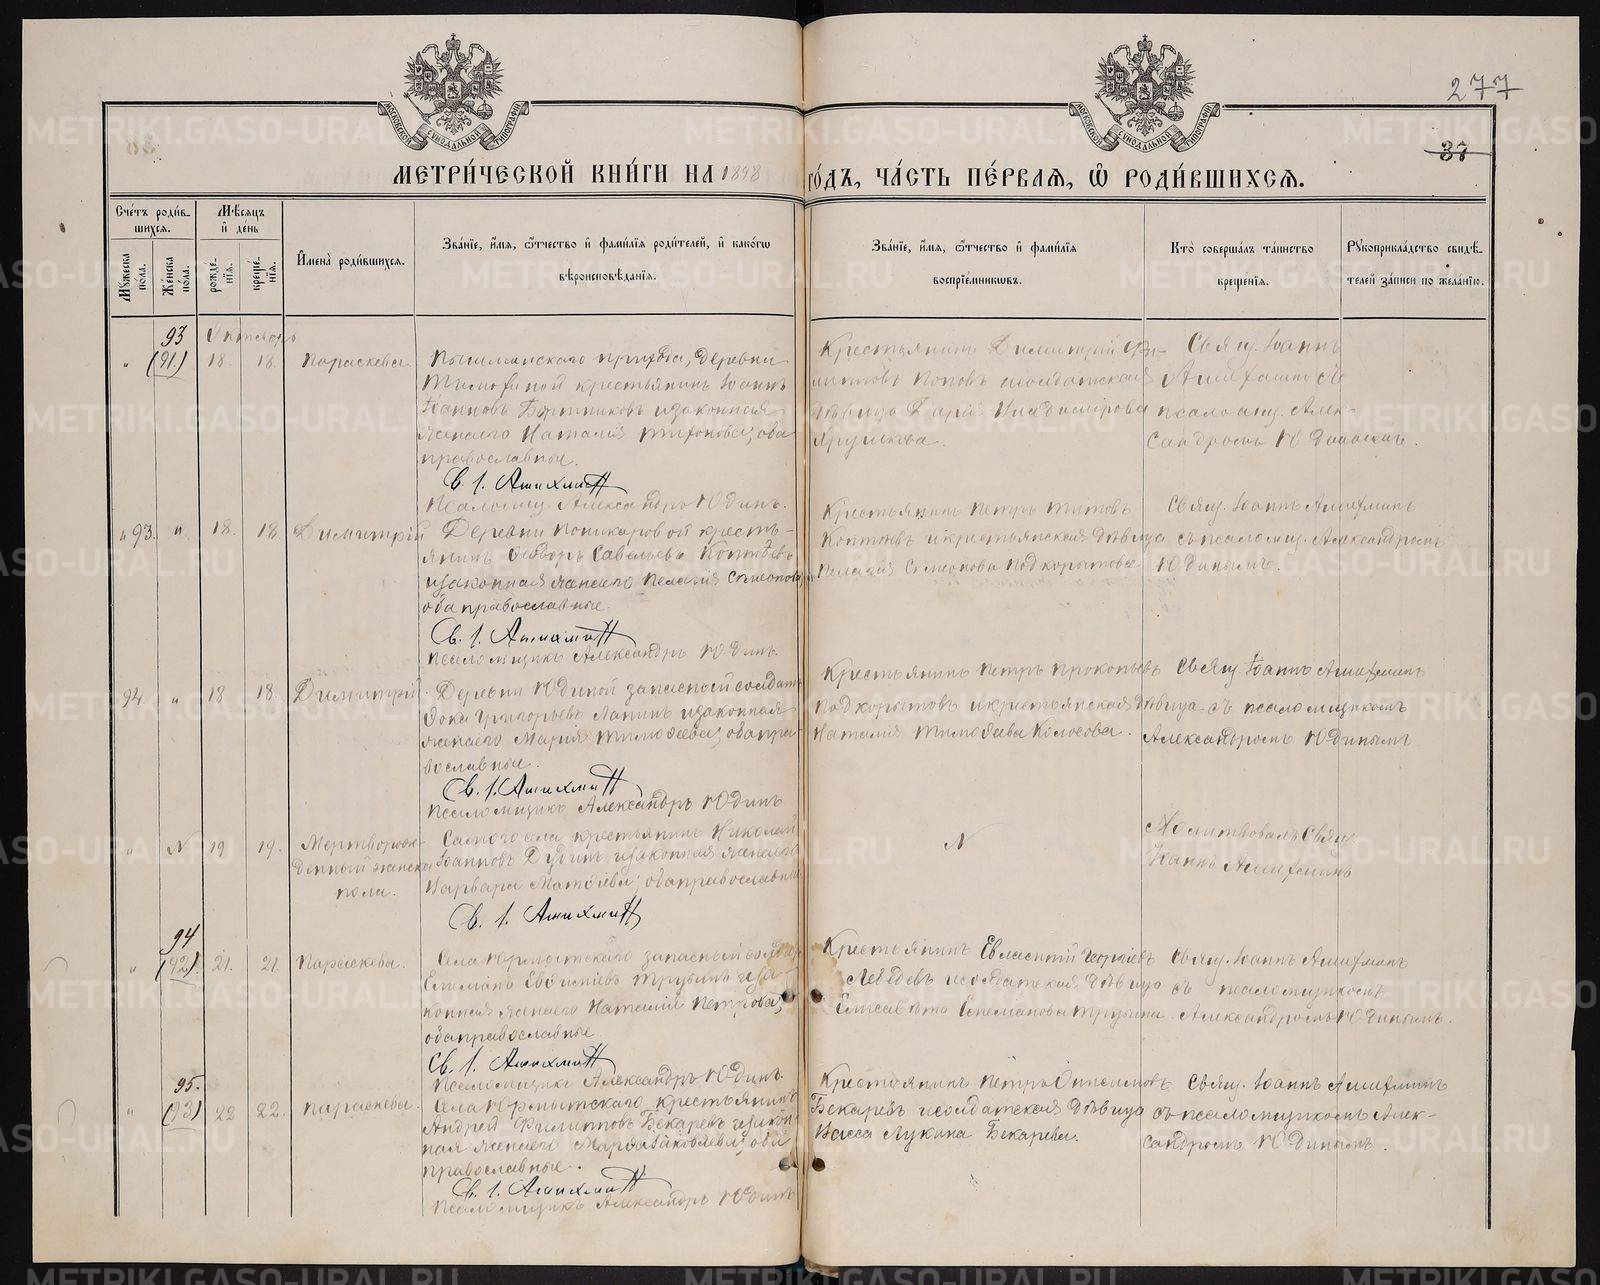 277
37
МОСКОВСКОЙ СѴНОДАЛЬНОЙ ТИПОГРАФІИ
МОСКОВСКОЙ СѴНОДАЛЬНОЙ ТИПОГРАФІИ
МЕТРИ́ЧЕСКОЙ КНИ́ГИ НА 1898 ГО́ДЪ, ЧА́СТЬ ПЕ́РВАЯ, Ѡ҆ РОДИ́ВШИХСЯ.
Сче́тъ роди́в-
шихся.
Мѣ́сяцъ
и҆ день
Му́жеска
по́ла.
Же́нска
по́ла.
рожде́-
нїѧ.
креще́-
нїѧ.
И҆мена̀ роди́вшихся.
Зва́нїе, и҆́мѧ, ѻ҆́тчество и҆ фами́лїѧ роди́телей, и҆ како́гѡ
вѣроисповѣ́данїѧ.
Зва́нїе, и҆́мѧ, ѻ҆́тчество и҆ фами́лїѧ
воспрїе́мникѡвъ.
Кто̀ соверша́лъ та́инство
креще́нїѧ.
Рукоприкла́дство свидѣ́-
телей за́писи по жела́нїю.
93 Октябрь
" (91) 18. 18. Параскева.
Пышминскаго прихода, деревни
крестьянинъ Іоаннъ
Іоанновъ и законная
жена его Наталія Тихонова; оба
православные.
Св. І. Ашихминъ
Псаломщ. Александръ Юдинъ.
Крестьянинъ Димитрій Фи-
липповъ Поповъ и солдатская
дѣвица Дарія Владимірова
Свящ. Іоаннъ
Ашихминъ съ
псаломщ. Алек-
сандромъ Юдинымъ.
93. " 18. 18. Димитрій
Деревни Поникаровой кресть-
янинъ Ѳеодоръ Савельевъ Коптевъ
и законная жена его Пелагія Симеонова,
оба православные.
Св. І. Ашихминъ
Псаломщикъ Александръ Юдинъ.
Крестьянинъ Петръ Титовъ
Коптевъ и крестьянская дѣвица
Пелагія Симеонова Подкорытова
Свящ. Іоаннъ Ашихминъ
съ псаломщ. Александромъ
Юдинымъ.
94. " 18 18. Димитрій.
Деревни Юдиной запасный солдатъ
Ѳока Григорьевъ Лапинъ и законная
жена его Марія Тимоѳеева; оба пра-
вославные.
Св. І. Ашихминъ
Псаломщикъ Александръ Юдинъ
Крестьянинъ Петръ Прокопьевъ
Подкорытовъ и крестьянская дѣвица
Наталія Тимоѳеева Колосова.
Свящ. Іоаннъ Ашихминъ
съ псаломщикомъ
Александромъ Юдинымъ
" N 19 19. Мертворож-
денный женска
пола.
Самого села крестьянинъ Николай
Іоанновъ Дудинъ и законная жена его
Варвара Матѳіева; оба православные
Св. І. Ашихминъ
N
Молитвовалъ Свящ.
Іоаннъ Ашихминъ
94
" (92) 21. 21. Параскева.
Села Юрмытскаго запасный солдатъ
Емеліанъ Евѳиміевъ Трубинъ и за-
конная жена его Наталія Петрова;
оба православные
Св. І. Ашихминъ
Псаломщикъ Александръ Юдинъ.
Крестьянинъ Евласпій Георгіевъ
Лебедевъ и солдатская дѣвица
Елисавета Емеліанова Трубина.
Свящ. Іоаннъ Ашихминъ
съ псаломщикомъ
Александромъ Юдинымъ.
95.
" (93) 22 22. Параскева.
Села Юрмытскаго крестьянинъ
Андрей Филипповъ Бекаревъ и закон-
ная жена его Марѳа Іаковлева; оба
православные.
Св. І. Ашихминъ
Псаломщикъ Александръ Юдинъ
Крестьянинъ Петръ Онисимовъ
Бекаревъ и солдатская дѣвица
Васса Лукина Бекарева.
Свящ. Іоаннъ Ашихминъ
съ псаломщикомъ Алек-
сандромъ Юдинымъ.
METRIKI.GASO-URAL.RU